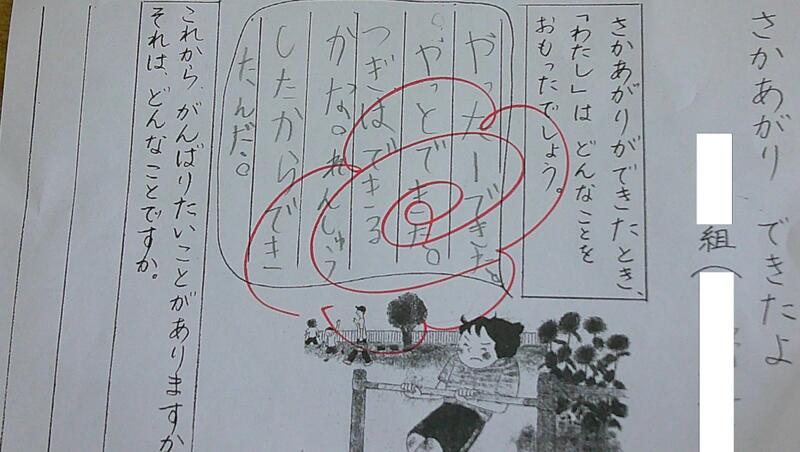 さかあがり できたよ
組（
さかあがりができたとき、
「わたし」は どんなことを
おもったでしょう。
やったーできた。
やっとできた。
つぎはできる
かな。れんしゅう
したからでき
たんだ。
これから、がんばりたいことがありますか
それは、どんなことですか。